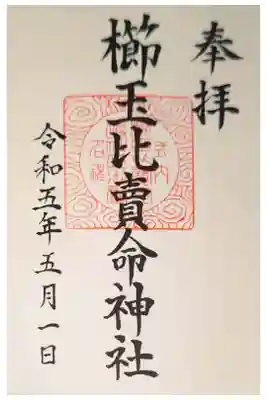 奉拝
櫛玉比賣命神社
令和五年五月一日